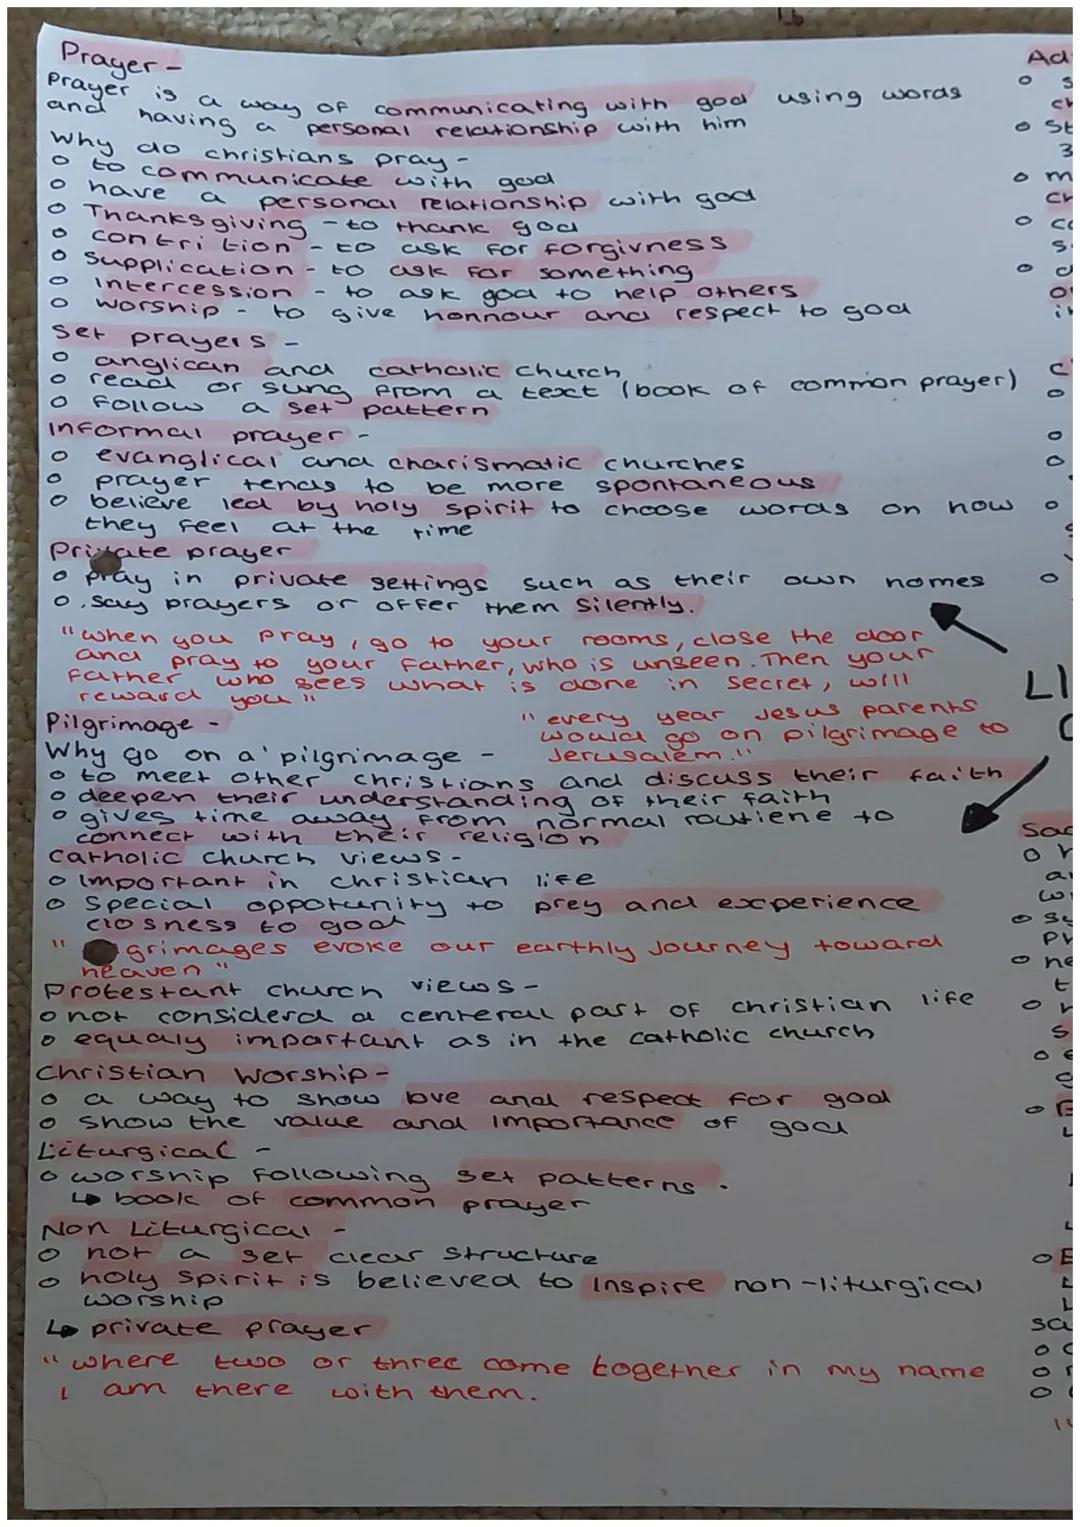 Prayer -
Prayer is a way of communicating with god using words
and having a personal relationship with him
Why do christians pray -
o to communicate with god
o have a personal relationship with god
o Thanksgiving - to thank god
o contrition - to ask for forgivness
o Supplication - to ask for something
o intercession - to ask god to help others
o worship - to give honnour and respect to god
Set prayers -
o anglican and catholic church
o read or sung from a text (book of common prayer)
o Follow a set pattern
Informal prayer -
o evanglical and charismatic churches
o prayer tends to be more spontaneous
o believe led by holy spirit to choose words on how
they feel at the time
Private prayer
o pray in private settings such as their own homes
o say prayers or offer them silently.
"when you pray, go to your rooms, close the door
and pray to your father, who is unseen. Then your
Father who sees what is done in secret, will
reward you"
Pilgrimage -
"every year Jesus parents
would go on pilgrimage to
Jerusalem."
Why go on a pilgrimage -
o to meet other christians and discuss their faith
o deepen their understanding of their faith
o gives time away from normal routiene to
connect with their religion
Catholic church views -
o important in christian life
o special oppotunity to prey and experience
closness to god
" grimages evoke our earthly Journey toward
heaven"
Protestant church views -
o not considerd a centeral part of christian life
o equaly important as in the catholic church
Christian Worship -
o a way to show love and respect for god
o show the value and importance of god
Liturgical -
o worship following set patterns.
↳ book of common prayer
Non Liturgical -
o not a set clear structure
o holy spirit is believed to inspire non-liturgical
worship
↳ private prayer
"where two or three come together in my name
I am there with them.